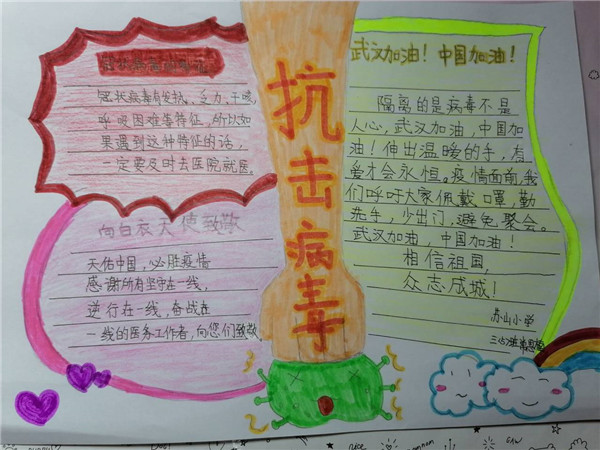 冠状病毒有发热,乏力,干咳,
呼吸困难等特征,所以如
果遇到这种特征的话,
一定要及时去医院就医.
向白衣天使致敬
天佑中国,必胜疫情
感谢所有坚守在一线,
逆行在一线,奋战在
一线的医务工作者,向您们致敬
抗击病毒
武汉加油!中国加油!
隔离的是病毒不是
人心,武汉加油,中国加
油!伸出温暖的手,有
爱才会永恒。疫情面前,我
们呼吁大家佩戴口罩,勤
洗手,少出门,避免聚会。
武汉加油,中国加油!
相信祖国,
众志成城!
苏山小学